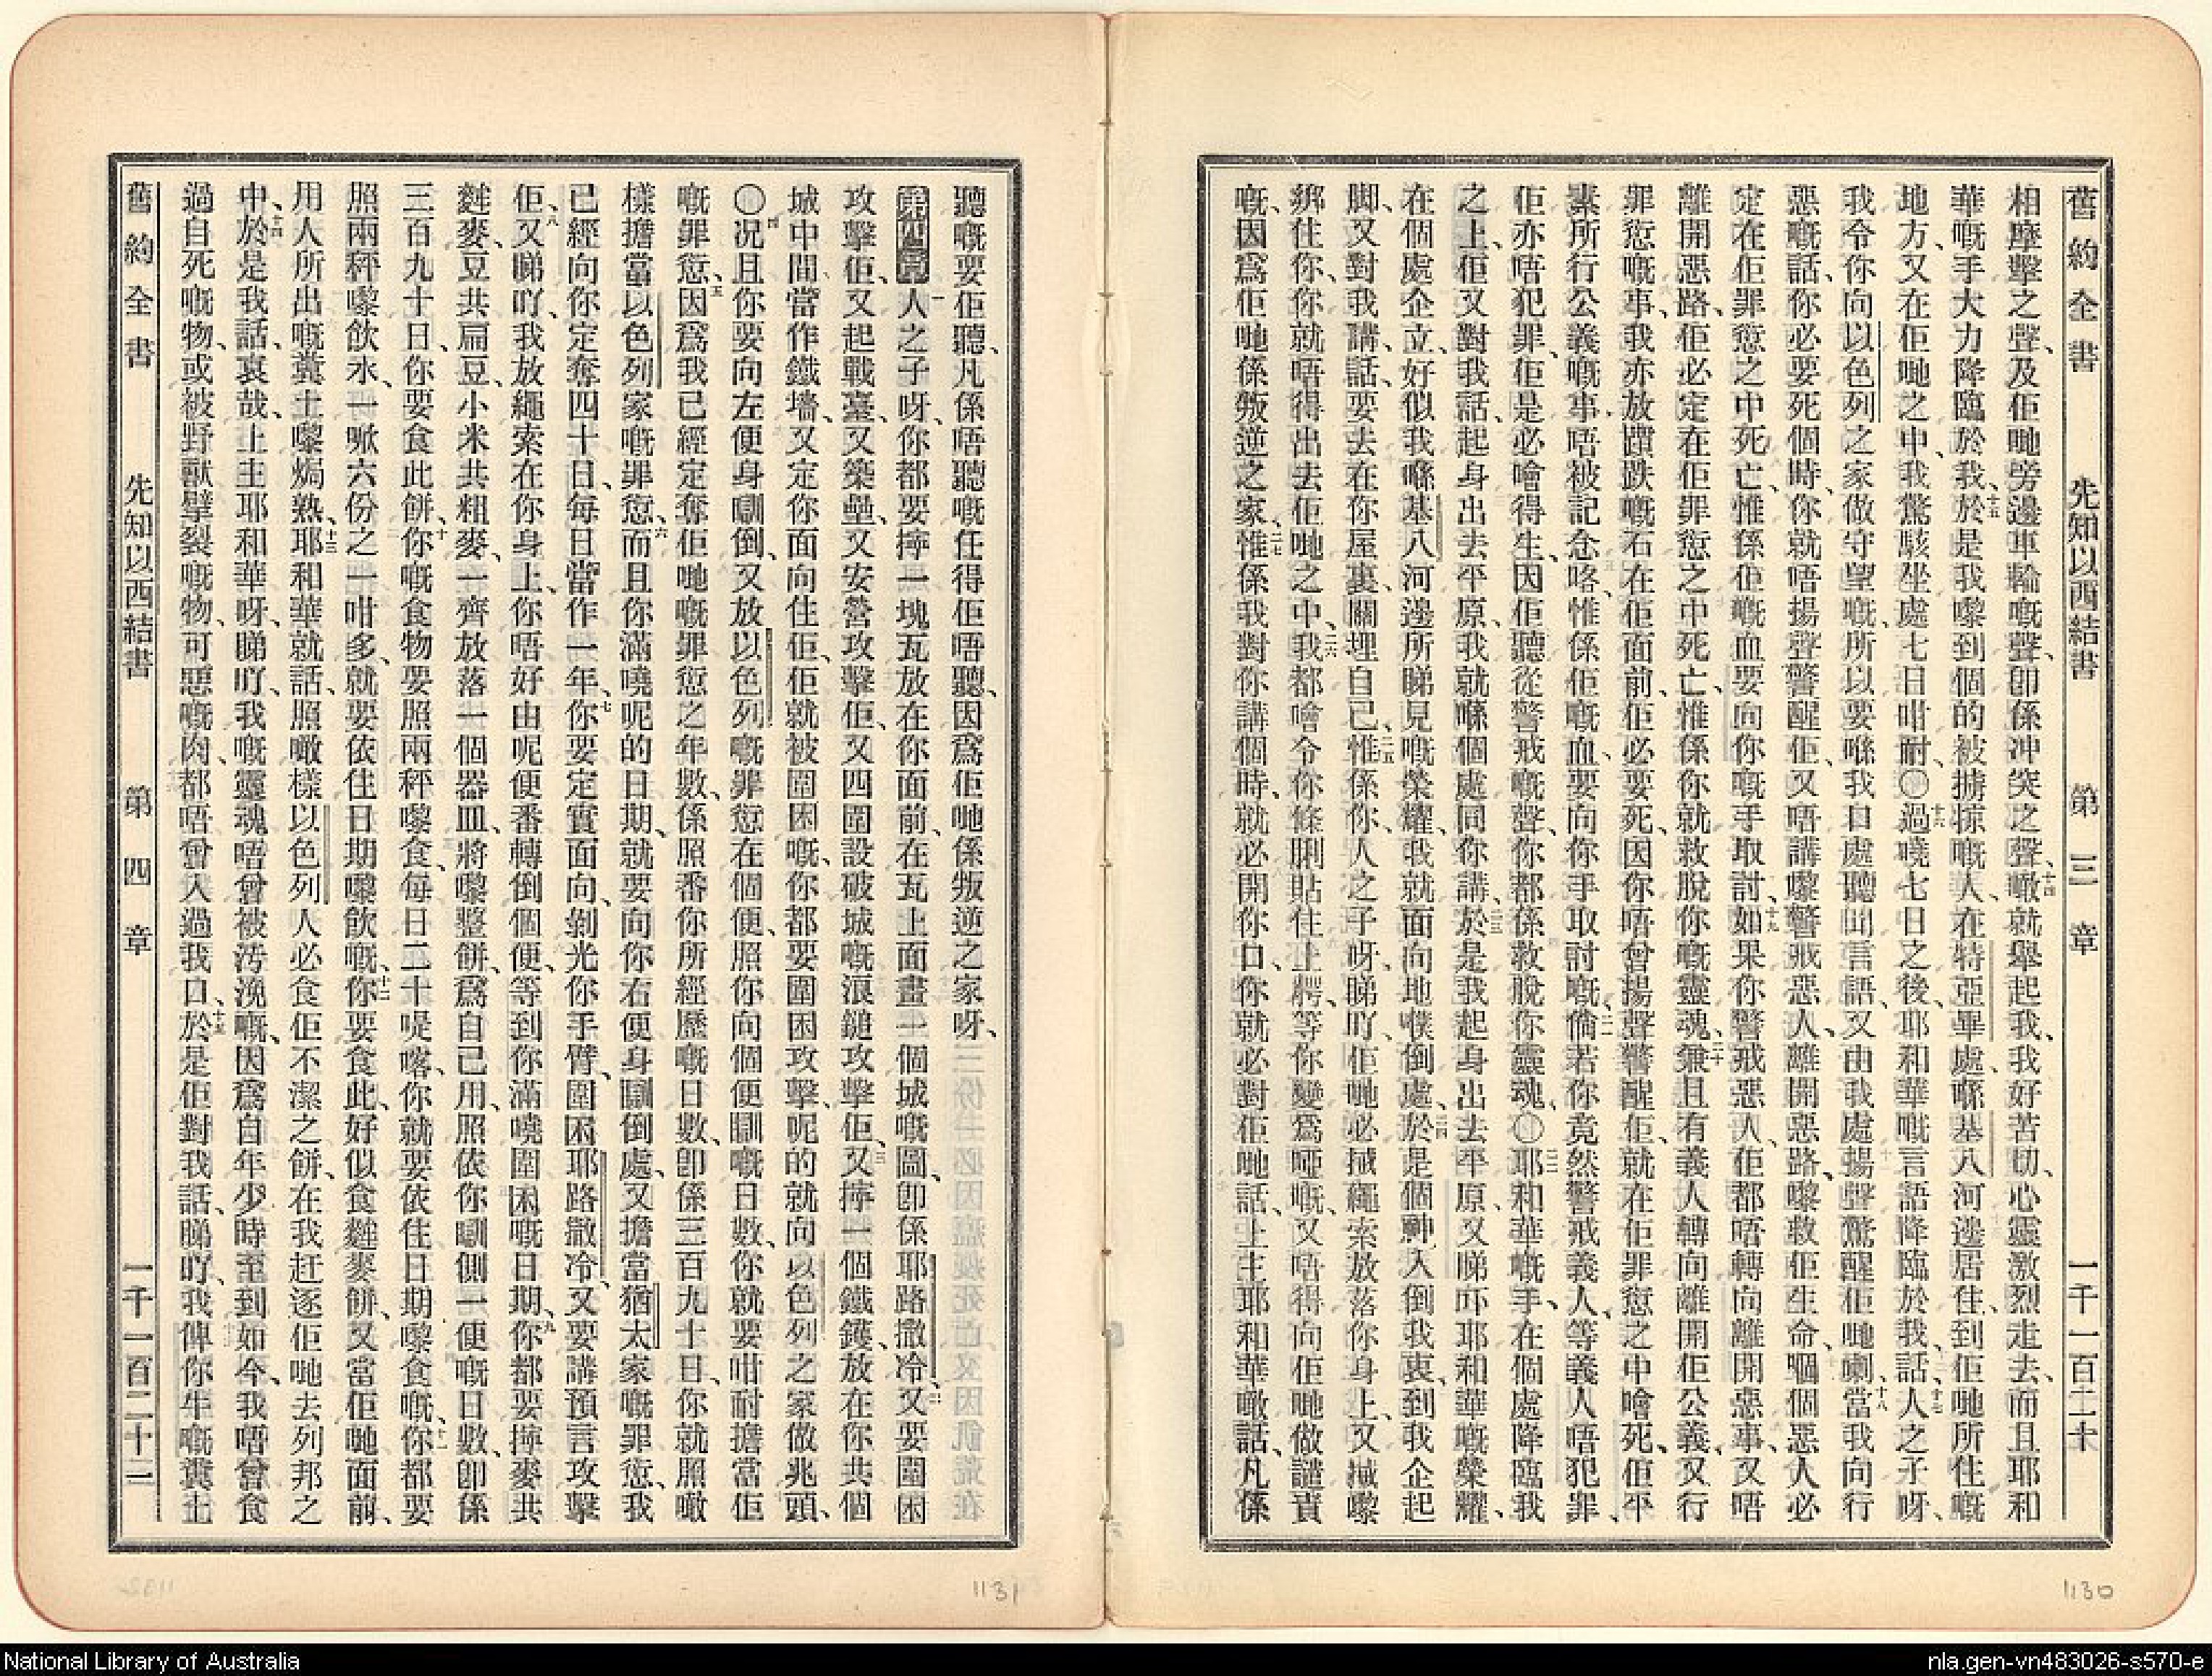 舊約全書 先知以西結書 第三章 一千一百二十
相摩擊之聲、及佢哋旁邊車輪嘅聲、卽係冲突之聲、十四噉就舉起我、我好苦切、心靈激烈走去、而且耶和
華嘅手大力降臨於我、十五於是我嚟到個的被擄掠嘅人、在特亞畢處、喺基八河邊居住、到佢哋所住嘅
地方、又在佢哋之中、我驚駭坐處七日咁耐、〇十六過曉七日之後、耶和華嘅言語降臨於我、話、十七人之子呀、
我令你向以色列之家做守望嘅、所以要喺我口處聽聞言語、又由我處揚聲驚醒佢哋喇、十八當我向行
惡嘅話、你必要死個時、你就唔揚聲警醒佢、又唔講嚟警戒惡人、離開惡路、嚟救佢生命、嗰個惡人必
定在佢罪愆之中死亡、惟係佢嘅血、要向你嘅手取討、十九如果你警戒惡人、佢都唔轉向離開惡事、又唔
離開惡路、佢必定在佢罪愆之中死亡、惟係你就救脫你嘅靈魂、二十兼且有義人轉向離開佢公義、又行
罪愆嘅事、我亦放躓跌嘅石在佢面前、佢必要死、因你唔曾揚聲警醒佢、就在佢罪愆之中噲死、佢平
素所行公義嘅事、唔被記念咯、惟係佢嘅血、要向你手取討嘅、二一倘若你竟然警戒義人、等義人唔犯罪、
佢亦唔犯罪、佢是必噲得生、因佢聽從警戒嘅聲、你都係救脫你靈魂、〇二二耶和華嘅手、在個處降臨我
之上、佢又對我話、起身出去平原、我就喺個處同你講、二三於是我起身出去平原、又睇吓耶和華嘅榮耀、
在個處企立、好似我喺基八河邊所睇見嘅榮耀、我就面向地噗倒處、二四於是個神入倒我裏、到我企起
脚、又對我講話、要去在你屋裏、關埋自己、二五惟係你、人之子呀、睇吖、佢哋必搣繩索放落你身上、又搣嚟
綁住你、你就唔得出去佢哋之中、二六我都噲令你條脷貼住上腭、等你變爲啞嘅、又唔得向佢哋做譴責
嘅、因爲佢哋係叛逆之家、二七惟係我對你講個時、就必開你口、你就必對佢哋話、上主耶和華噉話、凡係
聽嘅要佢聽、凡係唔聽嘅任得佢唔聽、因爲佢哋係叛逆之家呀、
第四章 一人之子呀、你都要擰一塊瓦放在你面前、在瓦上面畫一個城嘅圖、卽係耶路撒冷、二又要圍困
攻擊佢、又起戰臺、又築壘、又安營攻擊佢、又四圍設破城嘅浪鎚攻擊佢、三又擰一個鐵鑊、放在你共個
城中間、當作鐵墻、又定你面向住佢、佢就被圍困嘅、你都要圍困攻擊、呢的就向以色列之家做兆頭、
〇四况且你要向左便身瞓倒、又放以色列嘅罪愆在個便、照你向個便瞓嘅日數、你就要咁耐擔當佢
嘅罪愆、五因爲我已經定奪佢哋嘅罪愆之年數、係照番你所經歷嘅日數、卽係三百九十日、你就照噉
樣擔當以色列家嘅罪愆、六而且你滿曉呢的日期、就要向你右便身瞓倒處、又擔當猶太家嘅罪愆、我
已經向你定奪四十日、每日當作一年、七你要定實面向、剝光你手臂、圍困耶路撒冷、又要講預言攻擊
佢、八又睇吖、我放繩索在你身上、你唔好由呢便番轉倒個便、等到你滿曉圍困嘅日期、九你都要擰麥共
麰麥、豆共扁豆、小米共粗麥、一齊放落一個器皿、將嚟整餅、爲自己用、照依你瞓側一便嘅日數、卽係
三百九十日、你要食此餅、十你嘅食物要照兩秤嚟食、每日二十㖷喀、你就要依住日期嚟食嘅、十一你都要
照兩秤嚟飲水、一㖷六份之一咁多、就要依住日期嚟飲嘅、十二你要食此、好似食麰麥餅、又當佢哋面前、
用人所出嘅糞土嚟焗熟、十三耶和華就話、照噉樣以色列人必食佢不潔之餅、在我赶逐佢哋去列邦之
中、十四於是我話、哀哉、上主耶和華呀、睇吖、我嘅靈魂唔曾被汚浼嘅、因爲自年少時至到如今、我唔曾食
過自死嘅物、或被野獸擘裂嘅物、可惡嘅肉、都唔曾入過我口、十五於是佢對我話、睇吖、我俾你牛嘅糞土
舊約全書 先知以西結書 第四章 一千一百二十二
1131
1130
National Library of Australia
nla.gen-vn483026-s570-e